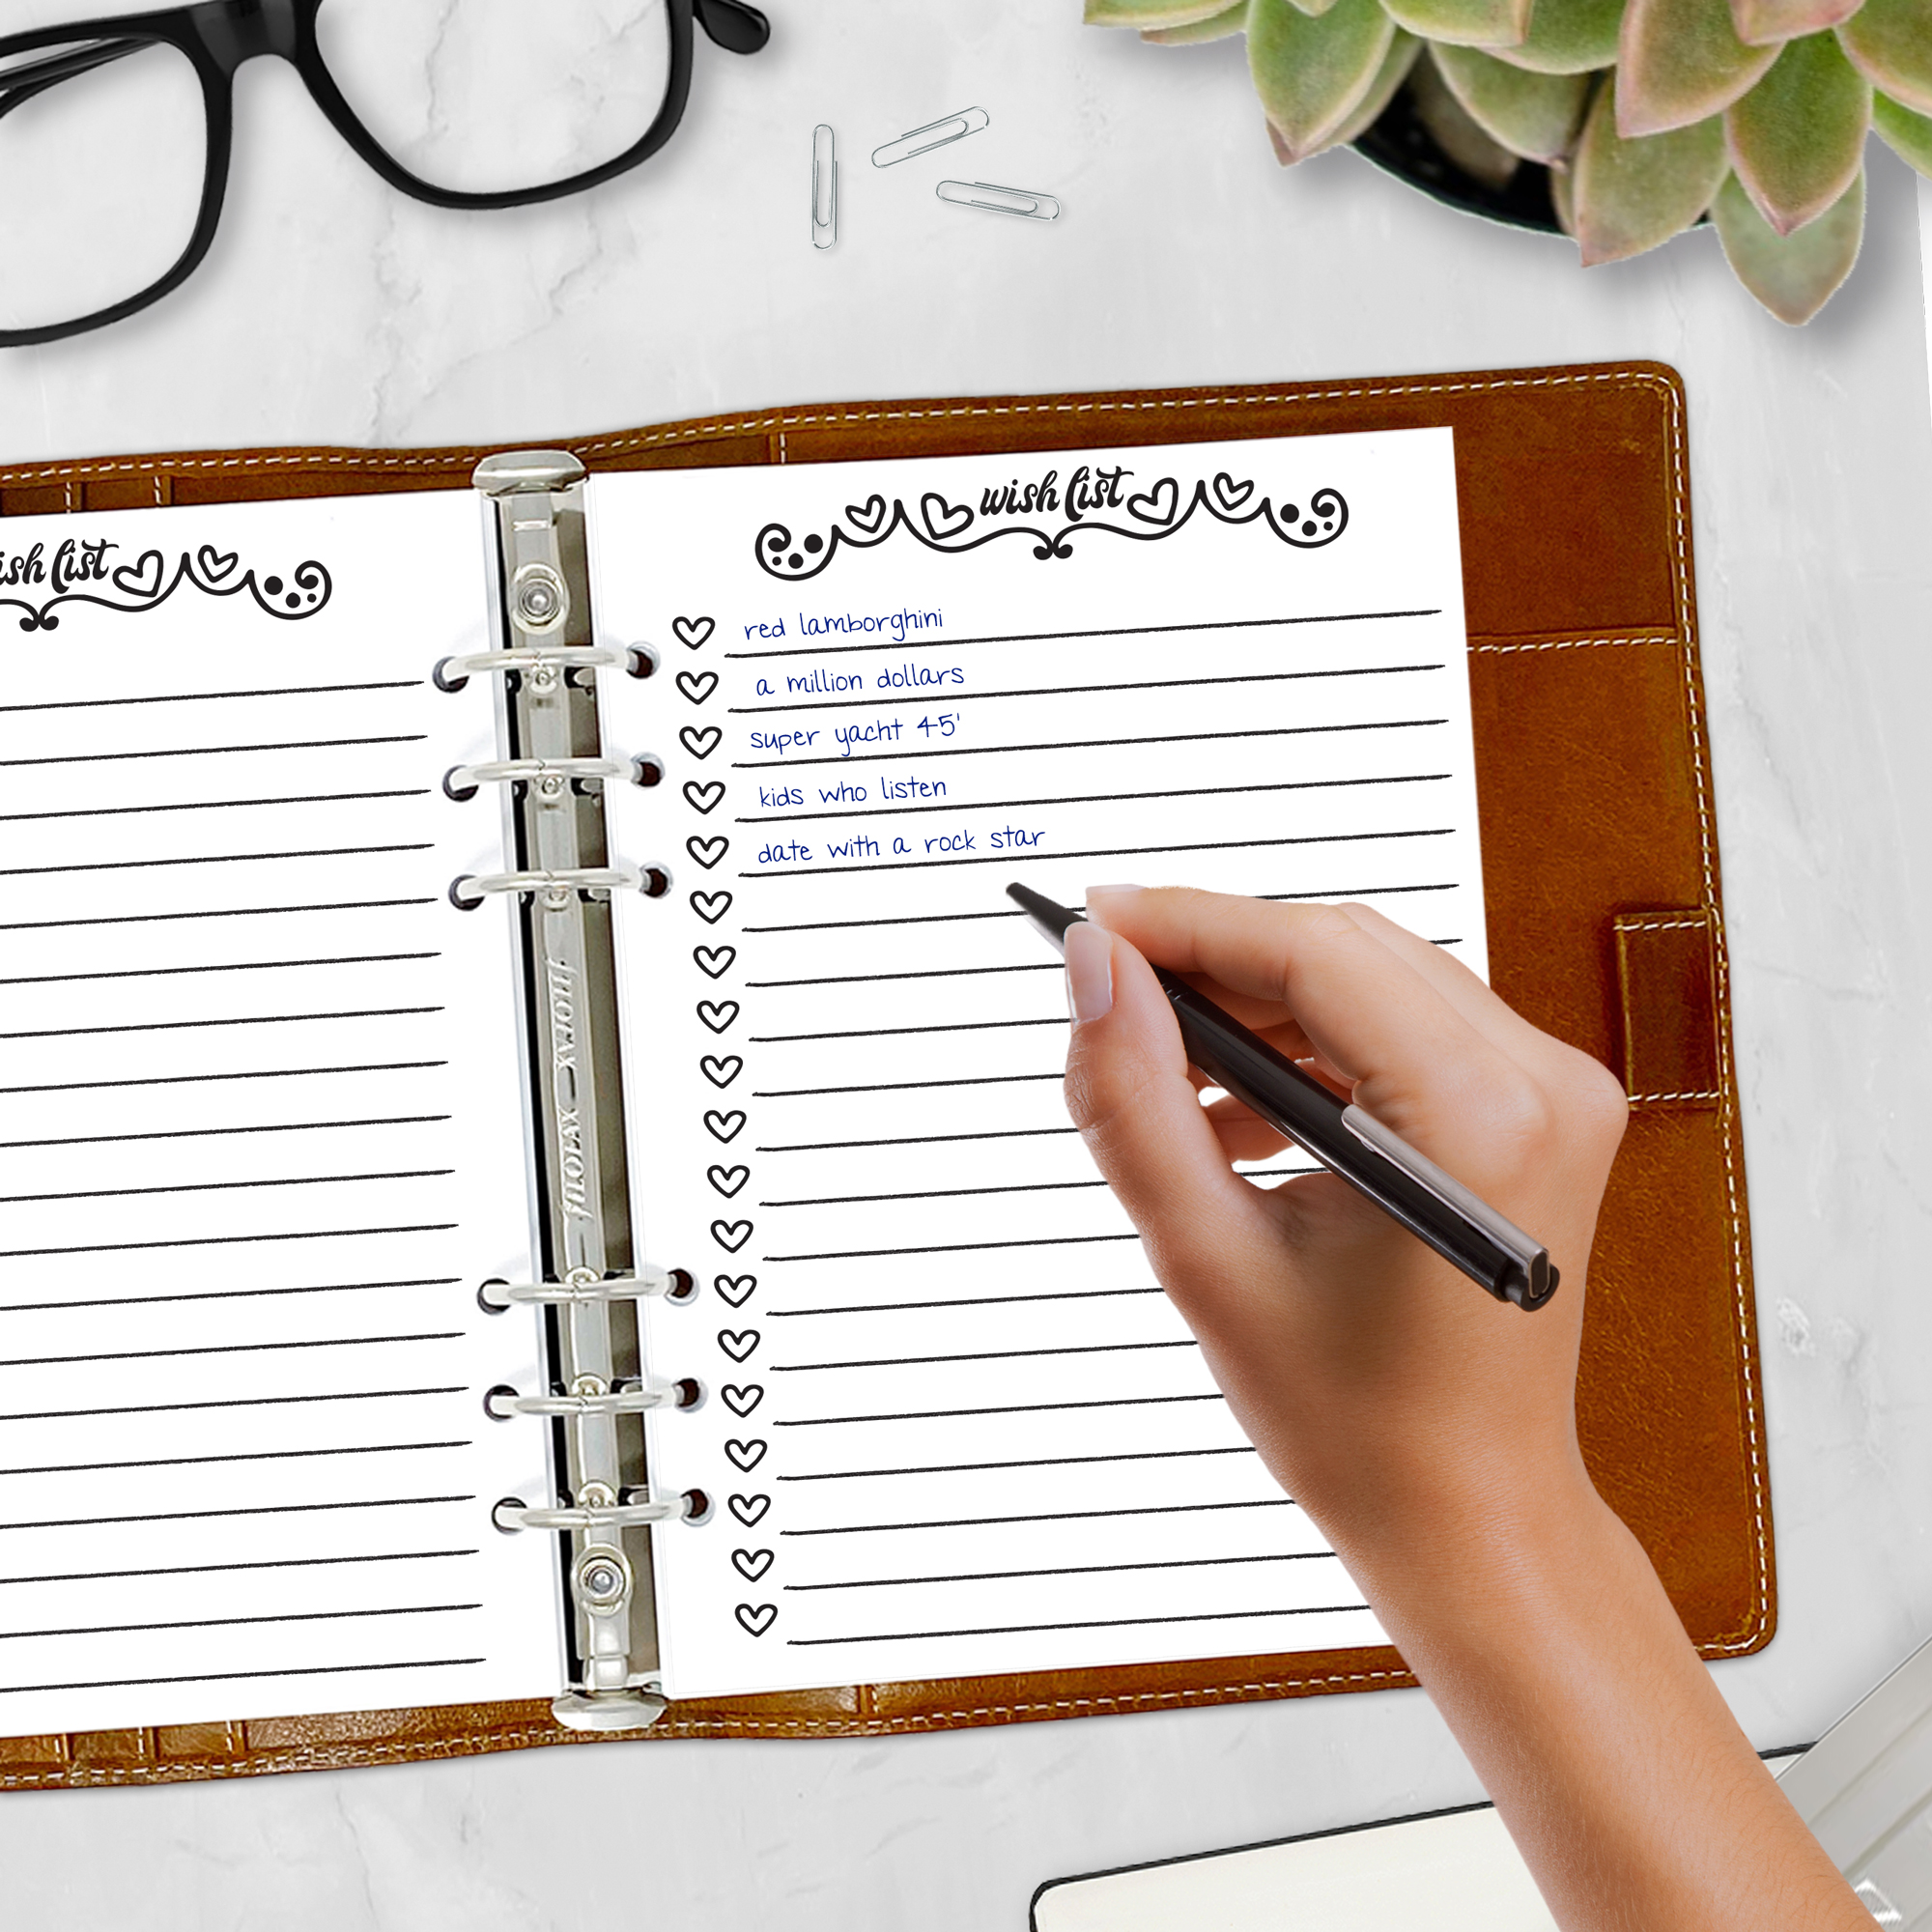 ish list
wish list
red lamborghini
a million dollars
super yacht 45'
kids who listen
date with a rock star
filofax
filofax